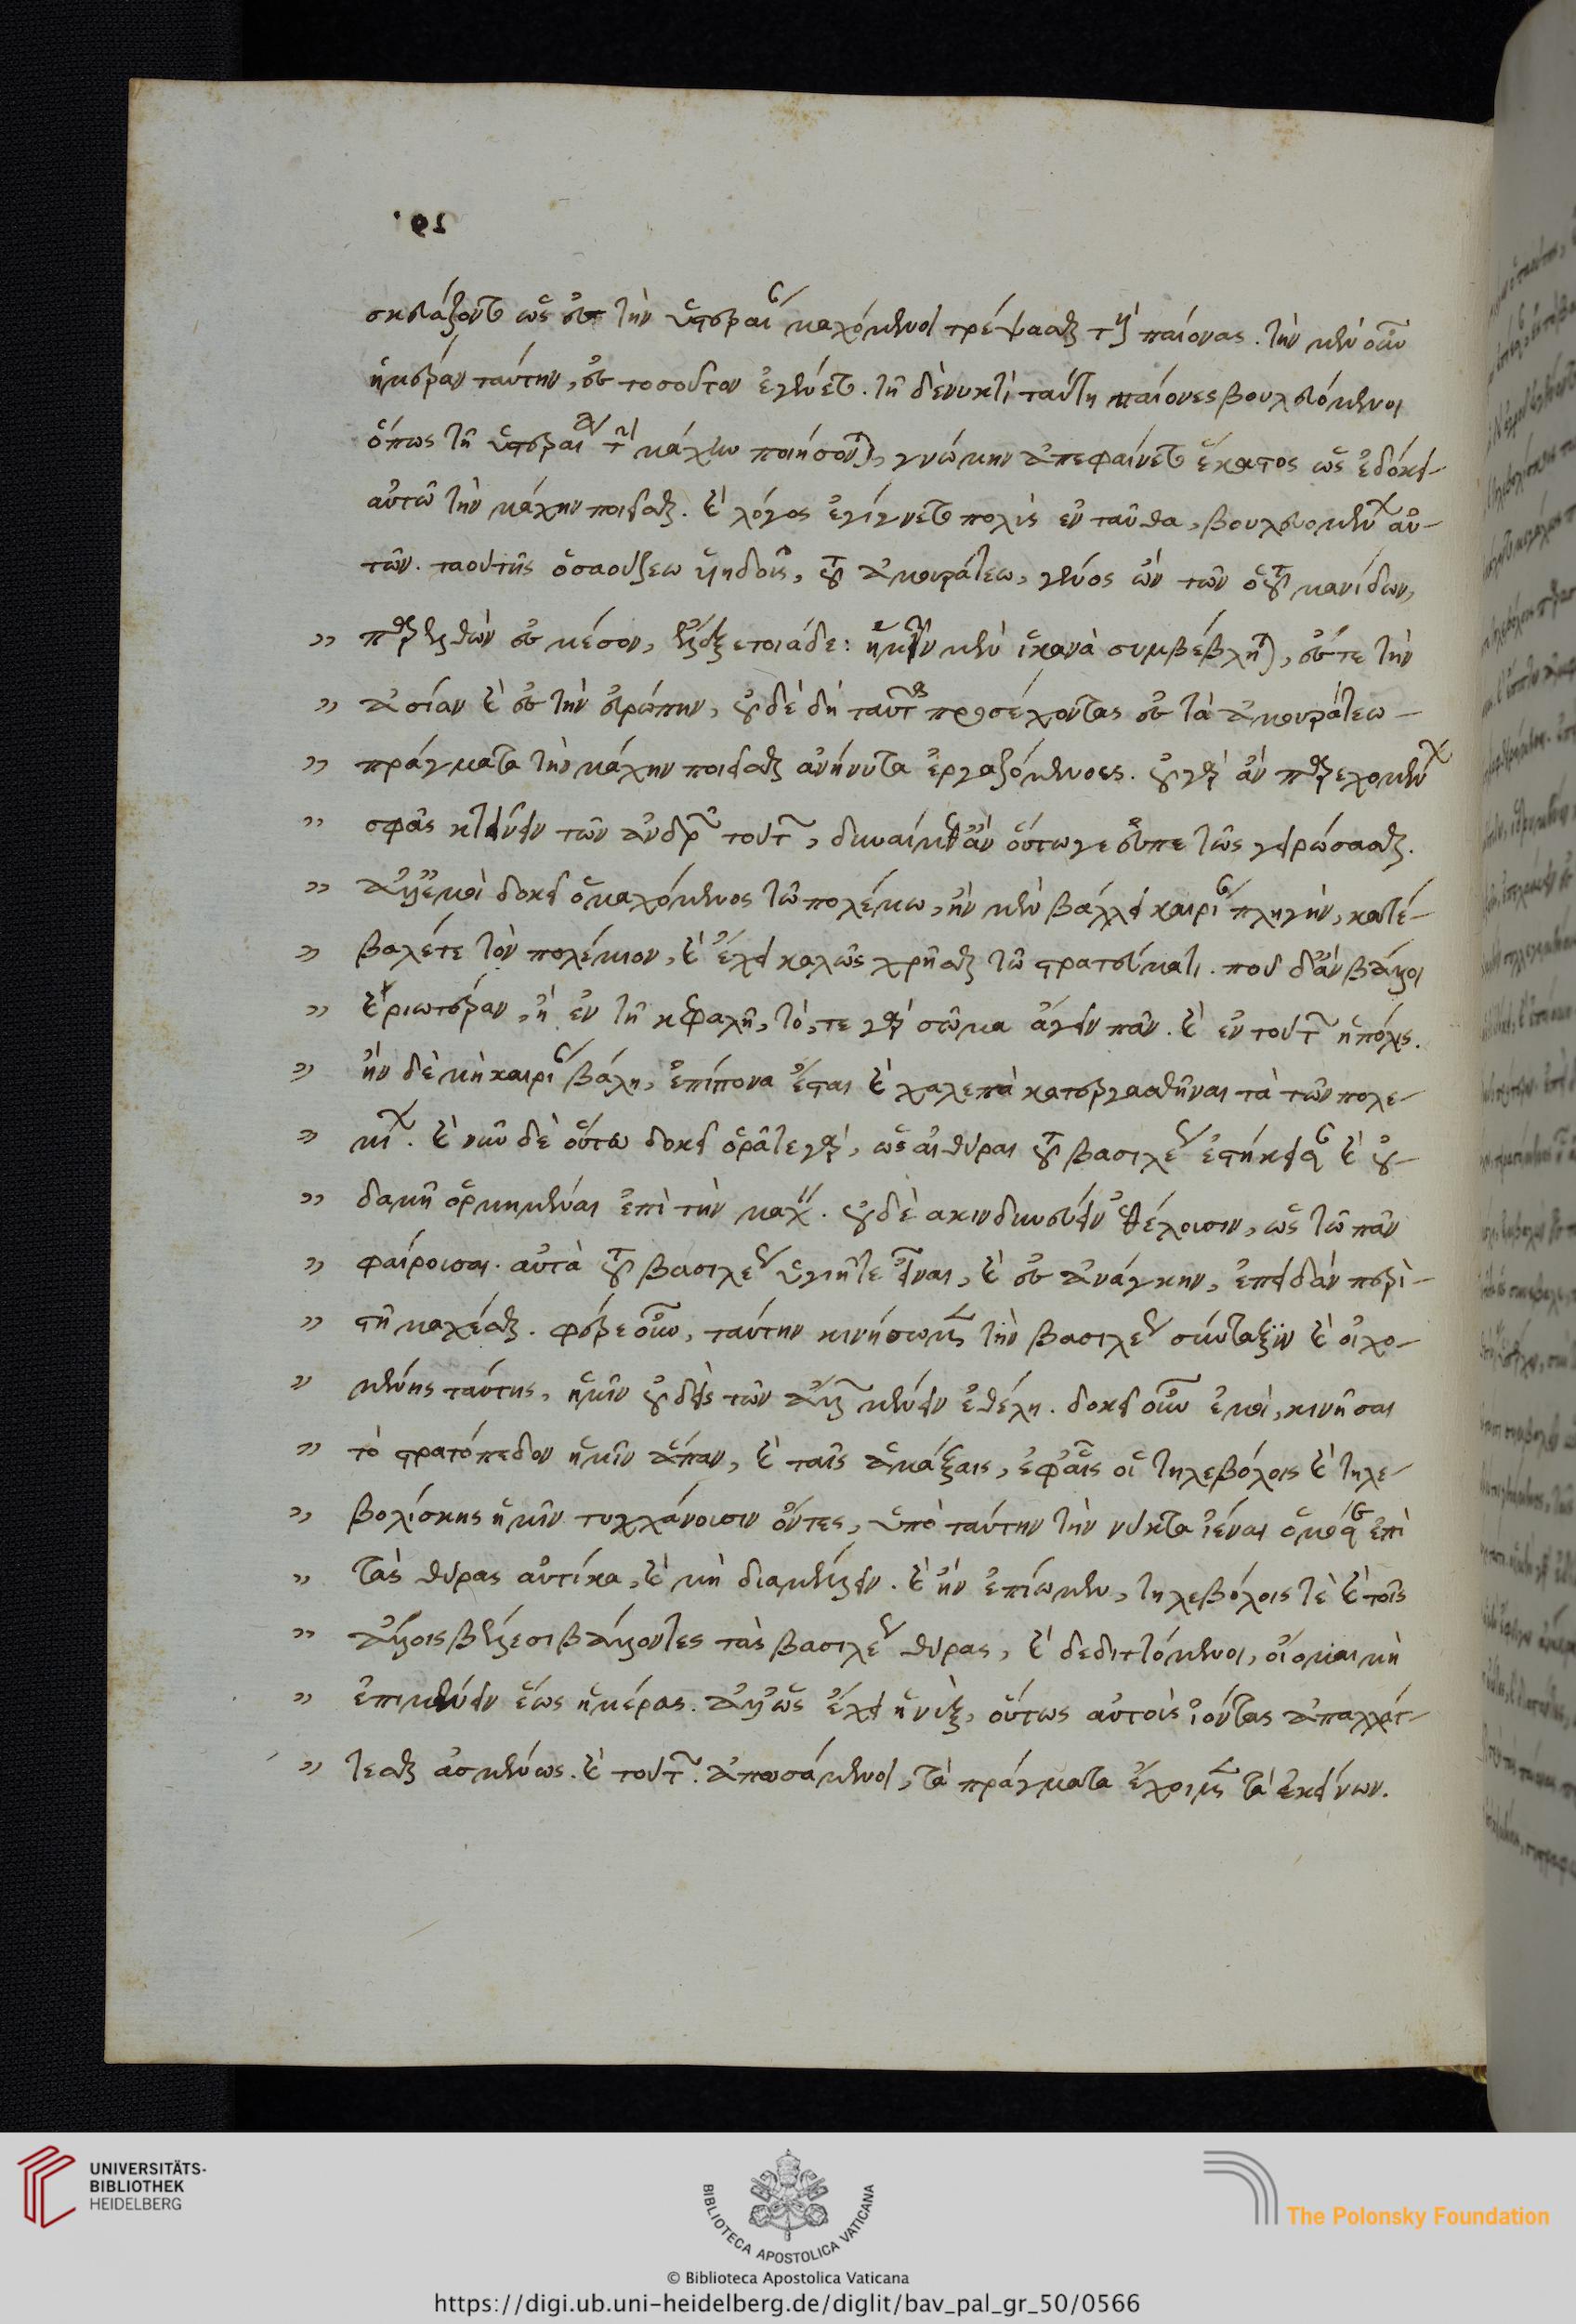 σκευάζοντο ὡς ἐς τὴν ὑστεραίαν μαχόμενοι τρέψασθαι τοὺς παίονας. τὴν μὲν οὖν
ἡμέραν ταύτην, ἐς τοσοῦτον ἐγένετο. τῇ δὲ νυκτὶ ταύτῃ παίονες βουλευόμενοι
ὅπως τῇ ὑστεραίᾳ τὴν μάχην ποιήσονται, γνώμην ἀπεφαίνετο ἕκαστος ὡς ἐδόκει
αὐτῷ τὴν μάχην ποιεῖσθαι. καὶ λόγος ἐγίγνετο πολὺς ἐνταῦθα, βουλευομένων αὐ-
τῶν. ὁ
παρελθὼν ἐς μέσον, ἔλεξε τοιάδε: ἡμῖν μὲν ἱκανὰ συμβέβληται, ἔς τε τὴν
ἀσίαν καὶ ἐς τὴν εὐρώπην, οὐ δὲ δὴ προσέχοντας ἐς τὰ ἀμουράτεω
πράγματα τὴν μάχην ποιεῖσθαι ἀνήνυτα ἐργαζόμενοι. οὐ γὰρ ἂν
σφᾶς τῶν ἀνδρῶν τούτων, ἂν οὕτω γε εὐπετῶς χειρώσασθαι.
ἀλλ' ἐμοὶ δοκεῖ ὁ μαχόμενος τῷ πολέμῳ, ἢν μὲν βάλλει καιρίαν πληγήν, κατέ-
βαλέ τε τὸν πολέμιον, καὶ ἔχει καλῶς χρῆσθαι τῷ στρατεύματι. ποῦ δ' ἂν βάλλοι
καιριωτέραν, ἢ ἐν τῇ κεφαλῇ, τό, τε γὰρ σῶμα ἄγειν πᾶν. καὶ ἐν τούτῳ ἡ πόλις.
ἢν δὲ μὴ καιρίαν βάλῃ, ἐπίπονα ἔσται καὶ χαλεπὰ κατεργασθῆναι τὰ τῶν πολε-
μίων. καὶ νῦν δὲ οὕτω δοκεῖ ὁρᾶτε γὰρ, ὡς αἱ θύραι τοῦ βασιλέως ἑστήκασι καὶ οὐ-
δαμῇ ὁρμημέναι ἐπὶ τὴν μάχην. οὐ δὲ ἀκινδυνεύειν ἐθέλοισιν, ὡς τῷ πᾶν
φαίροισαι. αὐτὰ τοῦ βασιλέως ὑγιῆ τε εἶναι, καὶ ἐς ἀνάγκην, ἐπειδὰν περὶ
τῇ μαχέσθαι. φέρε οὖν, ταύτην κινήσωμεν τὴν βασιλέως σύνταξιν καὶ οἰχο-
μένης ταύτης, ἡμῖν οὐδεὶς τῶν ἄλλων μένειν ἐθέλῃ. δοκεῖ οὖν ἐμοὶ, κινῆσαι
τὸ στρατόπεδον ἡμῖν ἅπαν, καὶ ταῖς ἁμάξαις, ἐφ' αἷς οἱ τηλεβόλοις καὶ τηλε-
βολίσκης ἡμῖν τυγχάνοισιν ὄντες, ὑπὸ ταύτην τὴν νύκτα ἰέναι ὁμόσε ἐπὶ
τὰς θύρας αὐτίκα, καὶ μὴ διαμέλλειν. καὶ ἢν ἐπίωμεν, τηλεβόλοις τὲ καὶ τοῖς
ἄλλοις βέλεσι βάλλοντες τὰς βασιλέως θύρας, καὶ δεδιττόμενοι, οἴομαι μὴ
ἐπιμένειν ἕως ἡμέρας. ἀλλ' ὡς ἔχει ἡ νὺξ, οὕτως αὐτοῖς ἰόντας ἀπαλλάτ-
τεσθαι ἀσμένως. καὶ τούτους ἀπωσάμενοι, τὰ πράγματα ἔχοιμεν τὰ ἐκείνων.
UNIVERSITÄTS-
BIBLIOTHEK
HEIDELBERG
BIBLIOTECA APOSTOLICA VATICANA
© Biblioteca Apostolica Vaticana
The Polonsky Foundation
https://digi.ub.uni-heidelberg.de/diglit/bav_pal_gr_50/0566